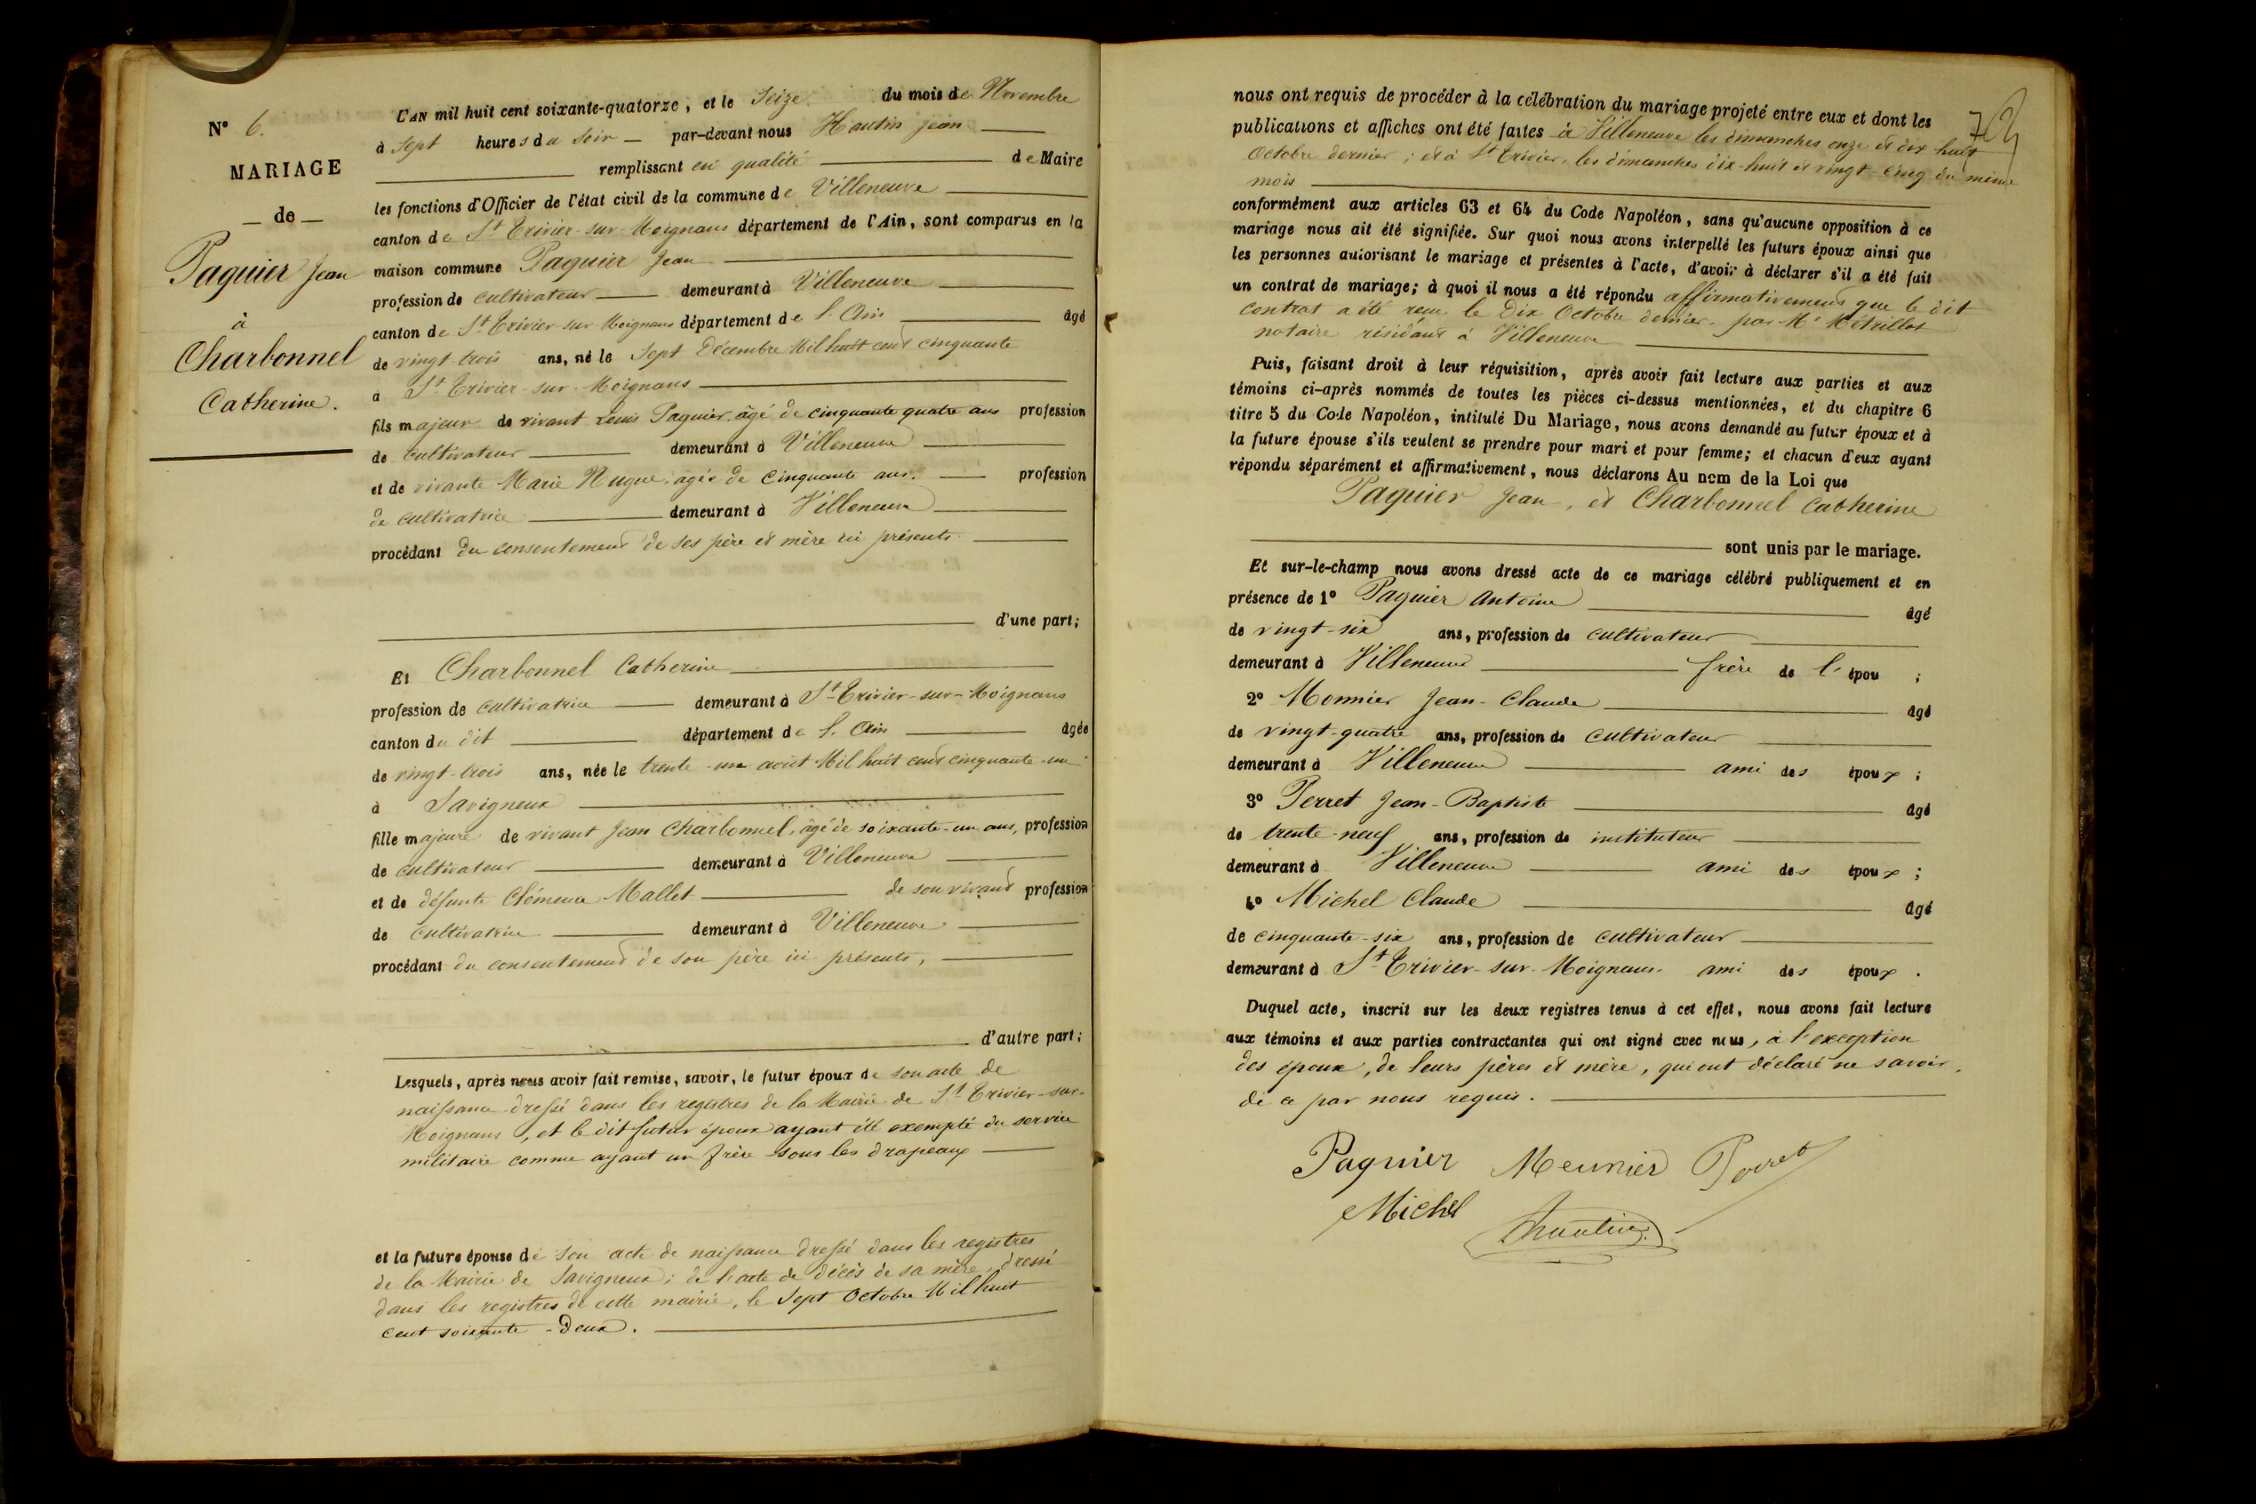 N° 6.
MARIAGE
— de —
Paquier Jean
à
Charbonnel
Catherine.
L'AN mil huit cent soixante-quatorze, et le Seize du mois de Novembre
à sept heures du soir — par-devant nous Hautin Jean
remplissant en qualité de Maire
les fonctions d'Officier de l'état civil de la commune de Villeneuve
canton de St Trivier-sur-Moignans département de l'Ain, sont comparus en la
maison commune Paquier Jean
profession de cultivateur demeurant à Villeneuve
canton de St Trivier-sur-Moignans département de l'Ain âgé
de vingt-trois ans, né le sept Décembre Mil huit cent cinquante
à St Trivier-sur-Moignans
fils majeur de vivant Louis Paquier, âgé de cinquante quatre ans profession
de cultivateur demeurant à Villeneuve
et de vivante Marie Hugue, agée de cinquante ans. profession
de cultivatrice demeurant à Villeneuve
procédant du consentement de ses père et mère ici présents
d'une part;
Et Charbonnel Catherine
profession de cultivatrice demeurant à St Trivier-sur-Moignans
canton du dit département de l'Ain âgée
de vingt-trois ans, née le trente-un août Mil huit cent cinquante-un
à Savigneux
fille majeure de vivant Jean Charbonnel, âgé de soixante-un ans, profession
de cultivateur demeurant à Villeneuve
et de défunte Clémence Mallet de son vivant profession
de cultivatrice demeurant à Villeneuve
procédant du consentement de son père ici présents,
d'autre part;
Lesquels, après nous avoir fait remise, savoir, le futur époux de son acte de
naissance dressé dans les registres de la Mairie de St Trivier-sur-
Moignans, et le dit futur époux ayant été exempté du service
militaire comme ayant un frère sous les drapeaux
et la future épouse de son acte de naissance dressé dans les registres
de la Mairie de Savigneux; de l'acte de décès de sa mère, dressé
dans les registres de cette mairie, le Sept Octobre Mil huit
cent soixante-deux.
nous ont requis de procéder à la célébration du mariage projeté entre eux et dont les
publications et affiches ont été faites à Villeneuve les dimanches onze et dix-huit
Octobre dernier; et à St Trivier, les dimanches dix-huit et vingt-cinq du même
mois
conformément aux articles 63 et 64 du Code Napoléon, sans qu'aucune opposition à ce
mariage nous ait été signifiée. Sur quoi nous avons interpellé les futurs époux ainsi que
les personnes autorisant le mariage et présentes à l'acte, d'avoir à déclarer s'il a été fait
un contrat de mariage; à quoi il nous a été répondu affirmativement que le dit
contrat a été reçu le Dix Octobre dernier par Me Métrillot
notaire résidant à Villeneuve
Puis, faisant droit à leur réquisition, après avoir fait lecture aux parties et aux
témoins ci-après nommés de toutes les pièces ci-dessus mentionnées, et du chapitre 6
titre 5 du Code Napoléon, intitulé Du Mariage, nous avons demandé au futur époux et à
la future épouse s'ils veulent se prendre pour mari et pour femme; et chacun d'eux ayant
répondu séparément et affirmativement, nous déclarons Au nom de la Loi que
Paquier Jean, et Charbonnel Catherine
sont unis par le mariage.
Et sur-le-champ nous avons dressé acte de ce mariage célébré publiquement et en
présence de 1° Paquier Antoine âgé
de vingt-six ans, profession de cultivateur
demeurant à Villeneuve frère de l'épou ;
2° Monnier Jean-Claude âgé
de vingt-quatre ans, profession de cultivateur
demeurant à Villeneuve ami des époux ;
3° Perret Jean-Baptiste âgé
de trente-neuf ans, profession de instituteur
demeurant à Villeneuve ami des époux ;
4° Michel Claude âgé
de cinquante-six ans, profession de cultivateur
demeurant à St Trivier-sur-Moignans ami des époux .
Duquel acte, inscrit sur les deux registres tenus à cet effet, nous avons fait lecture
aux témoins et aux parties contractantes qui ont signé avec nous, à l'exception
des époux, de leurs pères et mère, qui ont déclaré ne savoir,
de ce par nous requis.
Paquier Meunier Perret
Michel Hautin